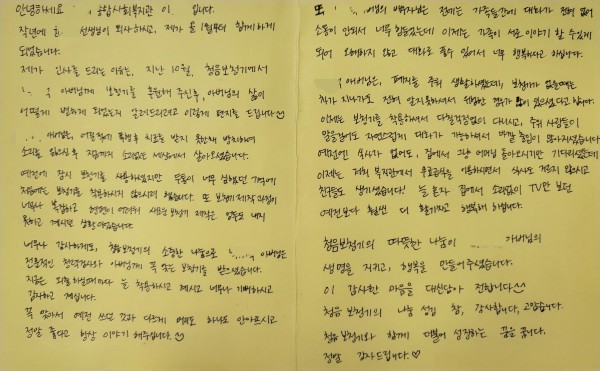 안녕하세요 종합사회복지관 이 입니다.
작년에 선생님이 퇴사하시고, 제가 올 1월부터 함께하게
되었습니다.
제가 인사를 드리는 이유는, 지난 10월, 청음보청기에서
아버님께 보청기를 후원해 주신 후, 아버님의 삶이
어떻게 변하게 되었는지 알려드리려고 이렇게 편지를 드립니다.
아버님은, 어릴적에 폭행 후 치료를 받지 못한채 방치하여
소리를 잃으신 후 지금까지 소리없는 세상에서 살아오셨습니다.
예전에 잠시 보청기를 사용하셨지만 두통이 너무 심했던 기억에
처음에는 보청기를 착용하시지 않으시려 했습니다. 또 보청기 제작 과정이
너무나 복잡하고 형편이 어려워 새로운 보청기 제작은 엄두도 내지
못하고 계시던 상황이었습니다.
너무나 감사하게도, 청음보청기의 소중한 나눔으로 아버님은
전문적인 청력검사와 아버님께 꼭 맞는 보청기를 받으셨습니다.
지금은 외출하실때마다 늘 착용하고 계시고 너무나 기뻐하시고
감사하고 계십니다.
꼭 맞아서 예전 쓰던 것과 다르게 머리도 하나도 안아프시고
정말 좋다고 항상 이야기 해주십니다.
또 아버님의 배우자님은 전에는 가족들간에 대화가 전혀 없어
소통이 안되서 너무 힘들었는데 이제는 가족이 서로 이야기 할 수 있게
되어 오해하지 않고 대화로 풀수 있어서 너무 행복하다고 하십니다.
아버님은, 폐지를 주워 생활하셨는데, 보청기가 없을때는
차가 지나가도 전혀 알지못하셔서 위험한 적이 많이 있으셨다고 합니다.
이제는 보청기를 착용하셔서 다닐 걱정없이 다니시고, 주위 사람들이
말을걸어도 자연스럽게 대화가 가능하셔서 바깥 출입이 많아지셨습니다.
예전엔 식사가 없어도, 집에서 그냥 어머님 돌아오시기만 기다리셨었는데
이제는 저희 복지관에서 무료급식을 이용하시면서 식사도 거르지 않으시고
친구들도 생기셨습니다! 늘 혼자 집에서 소리없이 TV만 보던
예전보다 훨씬 더 활기차고 행복해 하십니다.
청음보청기의 따뜻한 나눔이 아버님의
생명을 지키고, 행복을 만들어주셨습니다.
이 감사한 마음을 대신담아 전합니다
청음 보청기의 나눔 섬김 참, 감사합니다, 고맙습니다.
청음 보청기와 함께 더불어 성장하는 꿈을 꿉니다.
정말 감사드립니다.♡